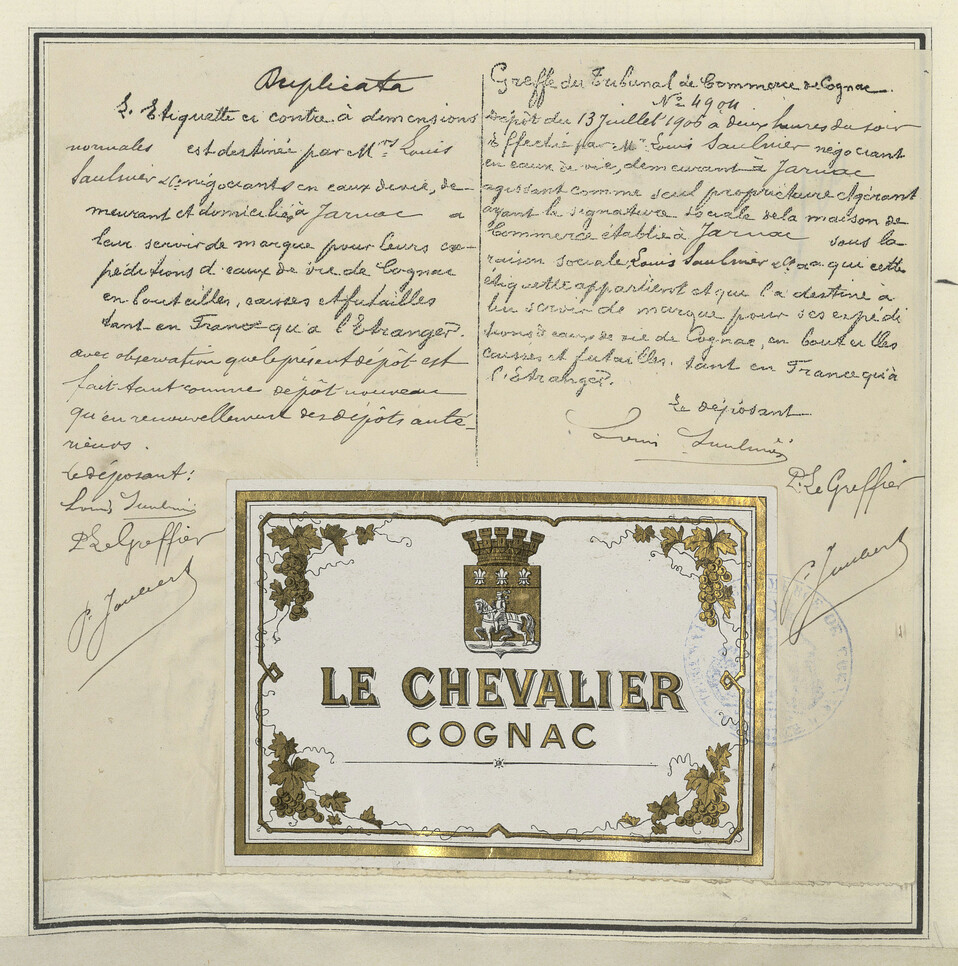 Duplicata
L'Etiquette ci contre à dimensions
normales est destinée par Mrs Louis
Saulnier & Cie négociants en eaux de vie, de-
meurant et domiciliés à Jarnac a
leur servir de marque pour leurs ex-
péditions d'eaux de vie de Cognac
en bouteilles, caisses et futailles
tant en France qu'à l'Etranger.
avec observation que le présent dépôt est
fait tant comme dépôt nouveau
qu'en renouvellement des dépôts anté-
rieurs.
Le déposant:
Louis Saulnier
P. Le Greffier
Greffe du Tribunal de Commerce de Cognac
No 4904
Dépôt du 13 Juillet 1906 à deux heures du soir
Effectué par Mr Louis Saulnier négociant
en eaux de vie, demeurant à Jarnac
agissant comme seul propriétaire et gérant
ayant la signature sociale de la maison de
Commerce établie à Jarnac sous la
raison sociale Louis Saulnier & Cie à qui cette
étiquette appartient et qui l'a destiné à
lui servir de marque pour ses expédi
tions d'eaux de vie de Cognac, en bouteilles
caisses et futailles, tant en France qu'à
l'Etranger.
Le déposant
Louis Saulnier
P. Le Greffier
LE CHEVALIER
COGNAC